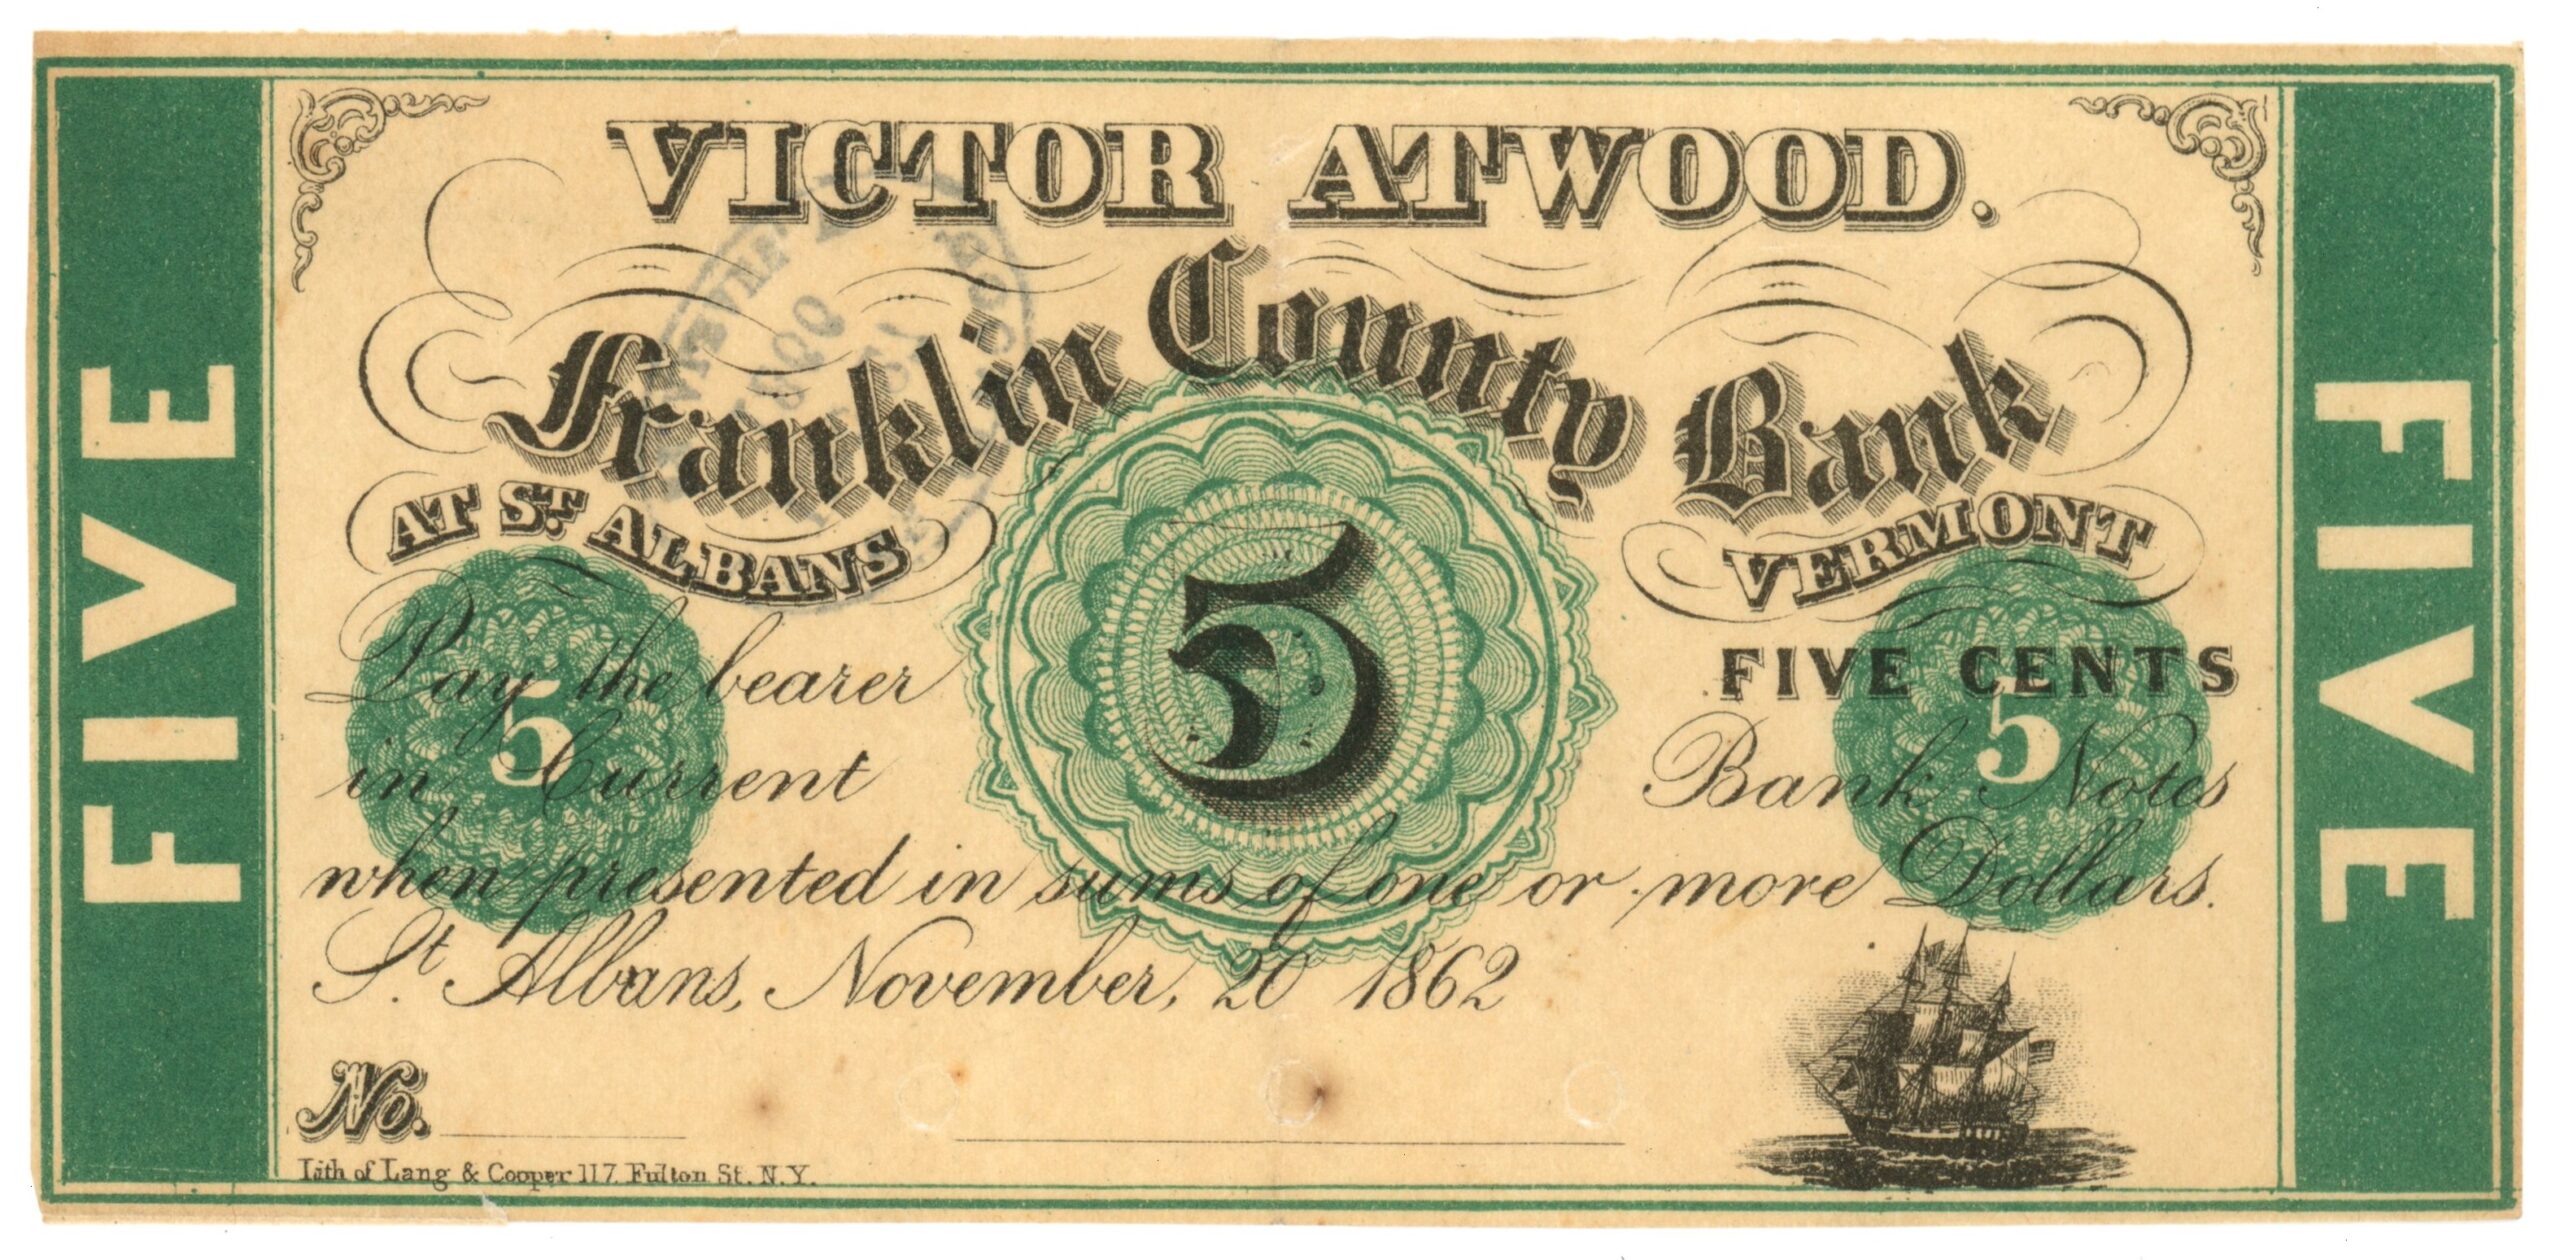 VICTOR ATWOOD.
Franklin County Bank
AT ST. ALBANS
VERMONT
FIVE
FIVE
5
5
5
Pay the bearer FIVE CENTS
in Current Bank Notes
when presented in sums of one or more Dollars.
St. Albans, November, 20 1862
No.
Lith of Lang & Cooper 117 Fulton St. N.Y.